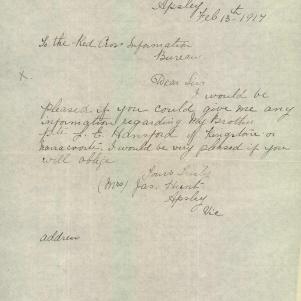 Apsley
Feb 13th 1917
To the Red Cross Information
Bureau
x
Dear Sir
I would be
pleased if you could give me any
information regarding My Brother
Pte L. E. Hansford of Kingston or
Naracoorte. I would be very pleased if you
will oblige
Yours Truly
(Mrs) Jas. Hunt
Apsley
Vic
address